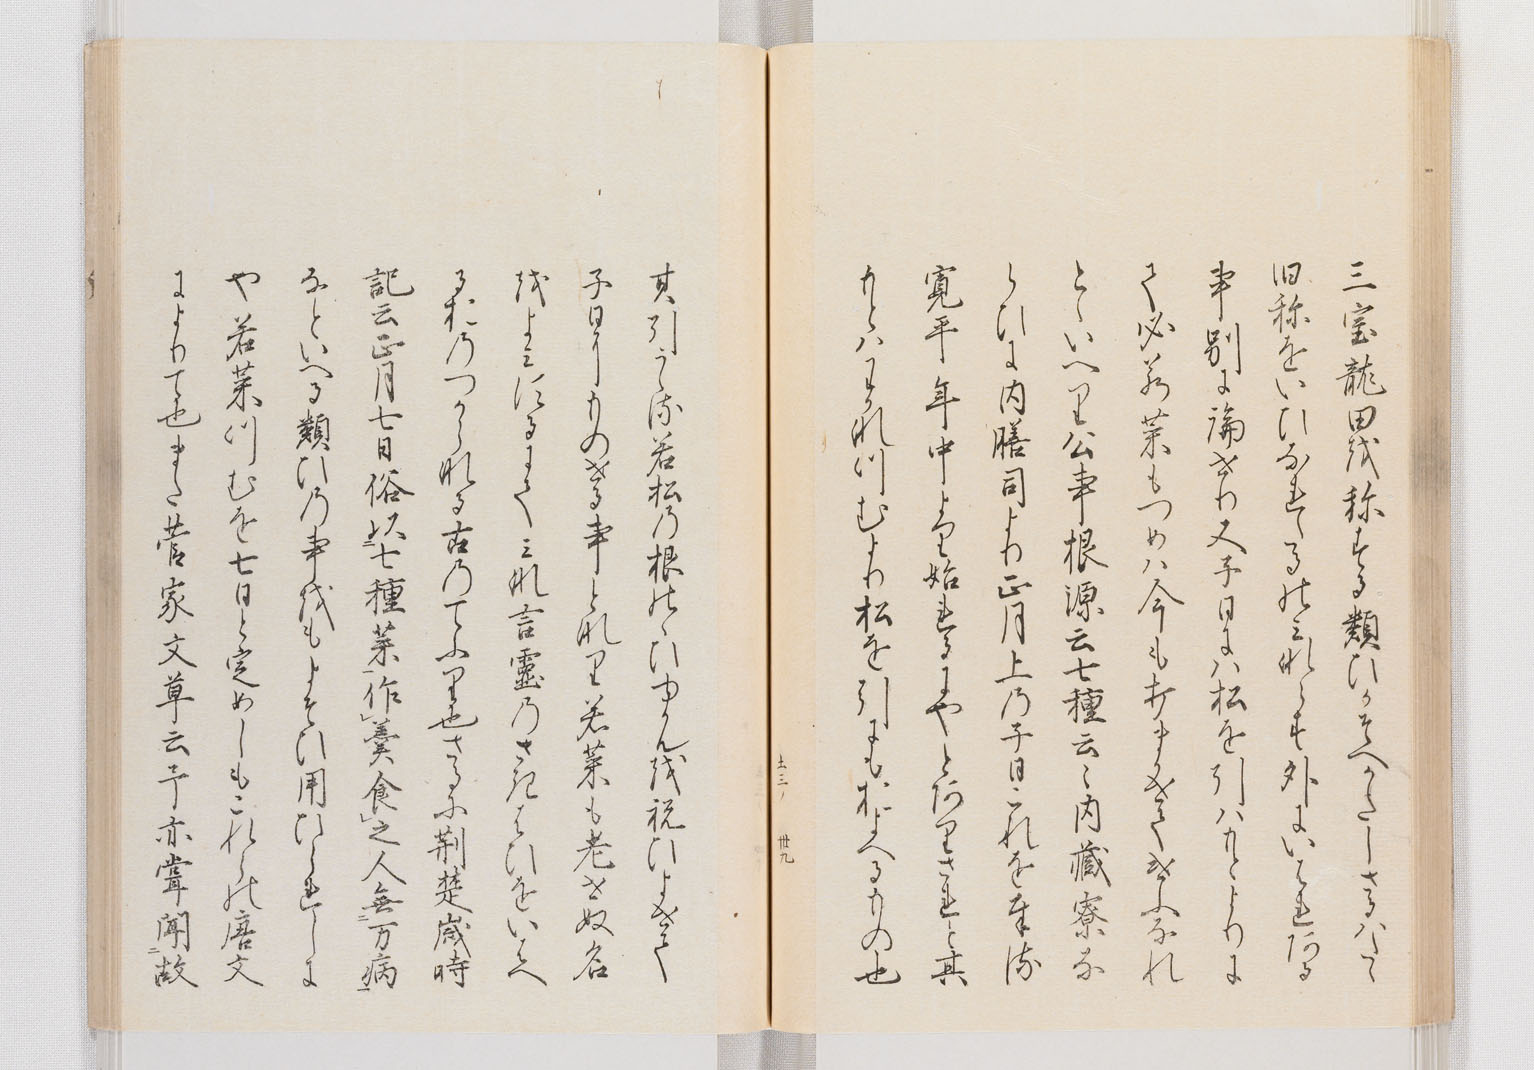 三室龍田を称する類ひかそへかたしさるハたゝ
旧称をいひなれたるのみならす外にいはれある
事別に論せり又子日にハ松を引ハもとよりに
て必若菜もつめハ今も打まかせてせふなれ
とゝいへり公事根源云七種云々内蔵寮な
らひに内膳司より正月上乃子日これを奉る
寛平年中より始れるにやとありされと其
もとハわかなつむより松を引にもおよへるもの也
土三ノ 卅九
其引うる若松乃根のこひゆかんを祝ひよせて
子日しものせる事となり若菜も老せぬ名
をよみにするにてみな言霊乃さきはひをいへ
るおのつからなる古のてふり也さるに荆楚歳時
記云正月七日俗以七種菜作羹食之人無万病
なといへる類ひ乃事をもよそひ用ひられしに
や若菜つむを七日と定めしもこれらの唐文
によりて也また菅家文草云予亦嘗聞故